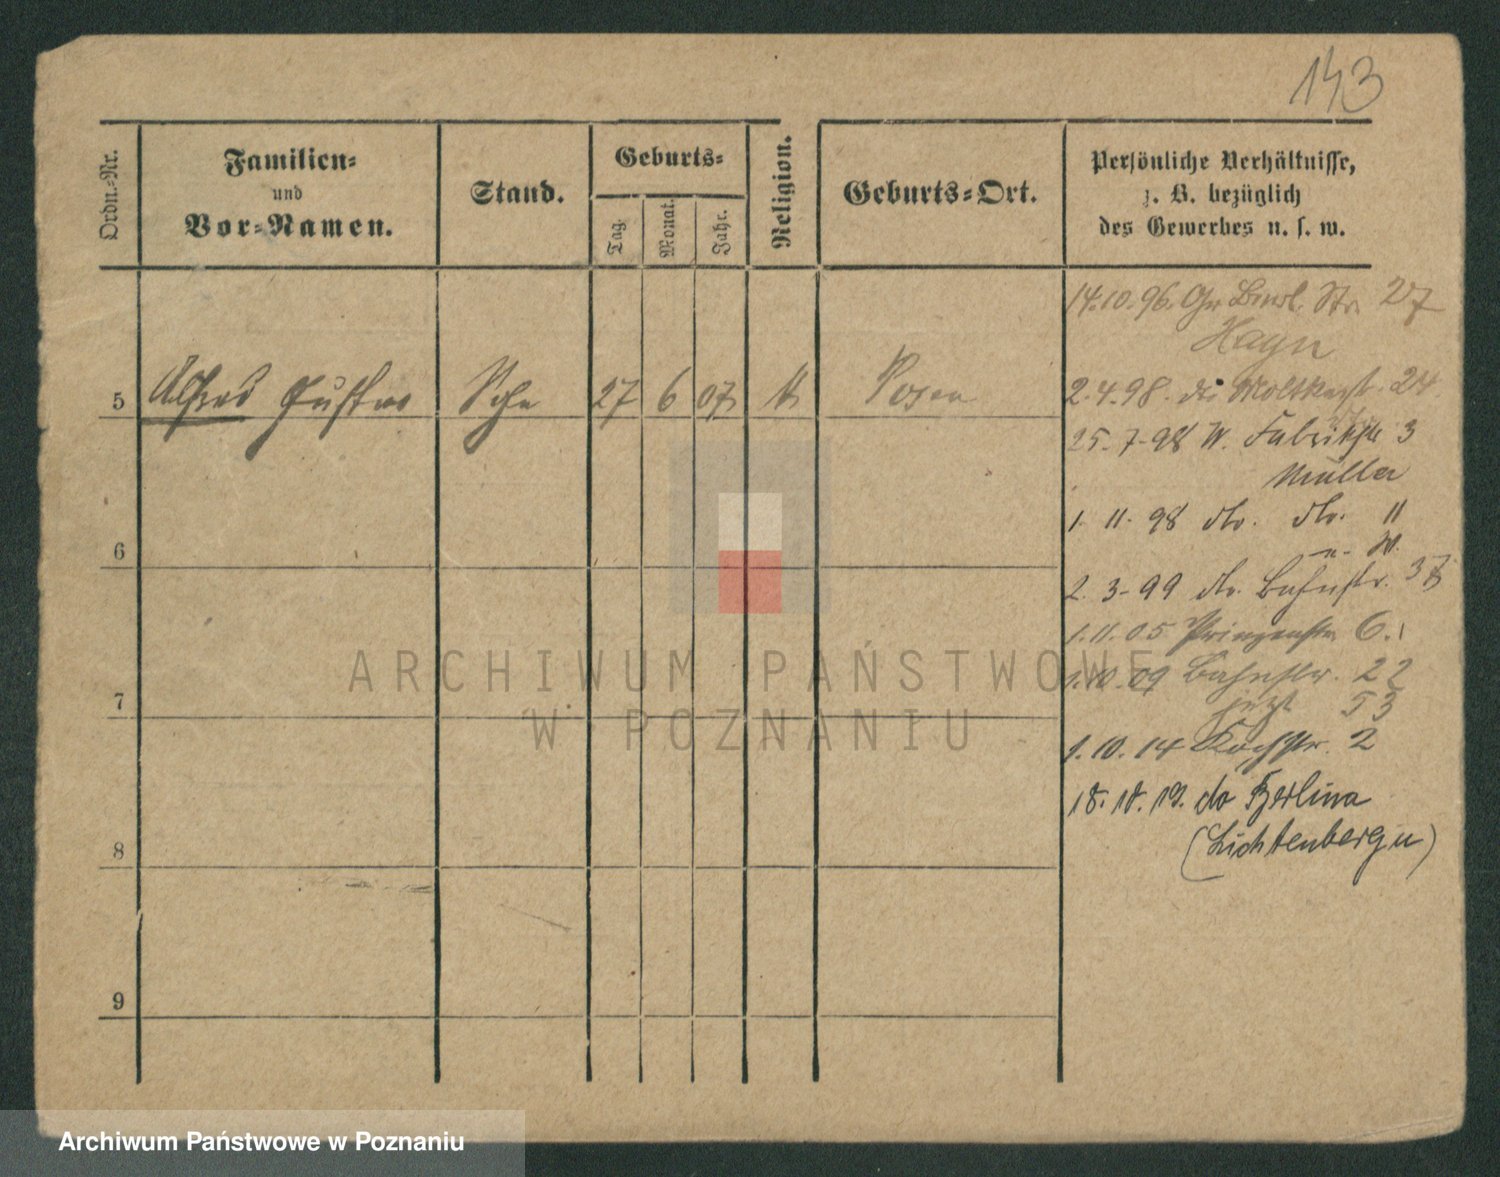 143
Ordn.-Nr.
Familien-
und
Vor-Namen.
Stand.
Geburts-
Tag.
Monat.
Jahr.
Religion.
Geburts-Ort.
Persönliche Verhältnisse,
z. B. bezüglich
des Gewerbes u. s. w.
14.10.96. Gr Berl. Str. 27
Hayn
5 Alfred Gustav Sohn 27 6 07 Posen
2.4.98. Moltkestr. 24
25.7.98 W. Fabrikstr 3
Müller
1. 11. 98 do. do. 11
6
u. W.
2. 3. 99 do. Bahnstr.
1.11.05 Prinzenstr 6.
1.10.09 Bahnstr. 22
7
jetzt 53
1.10.14 Kochstr. 2
18. 10. 19. do Berlina
8
(Lichtenbergu)
9
ARCHIWUM PAŃSTWOWE
W POZNANIU
Archiwum Państwowe w Poznaniu